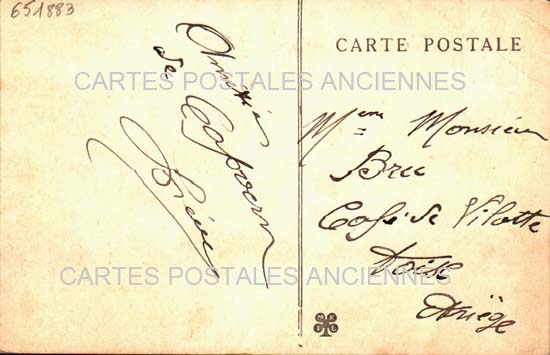 651883
CARTE POSTALE
CARTES POSTALES ANCIENNES
Amitiés
de Capvern
Mme Monsieur
Bree
Café de Vilotte
Foix
Ariège
CARTES POSTALES ANCIENNES